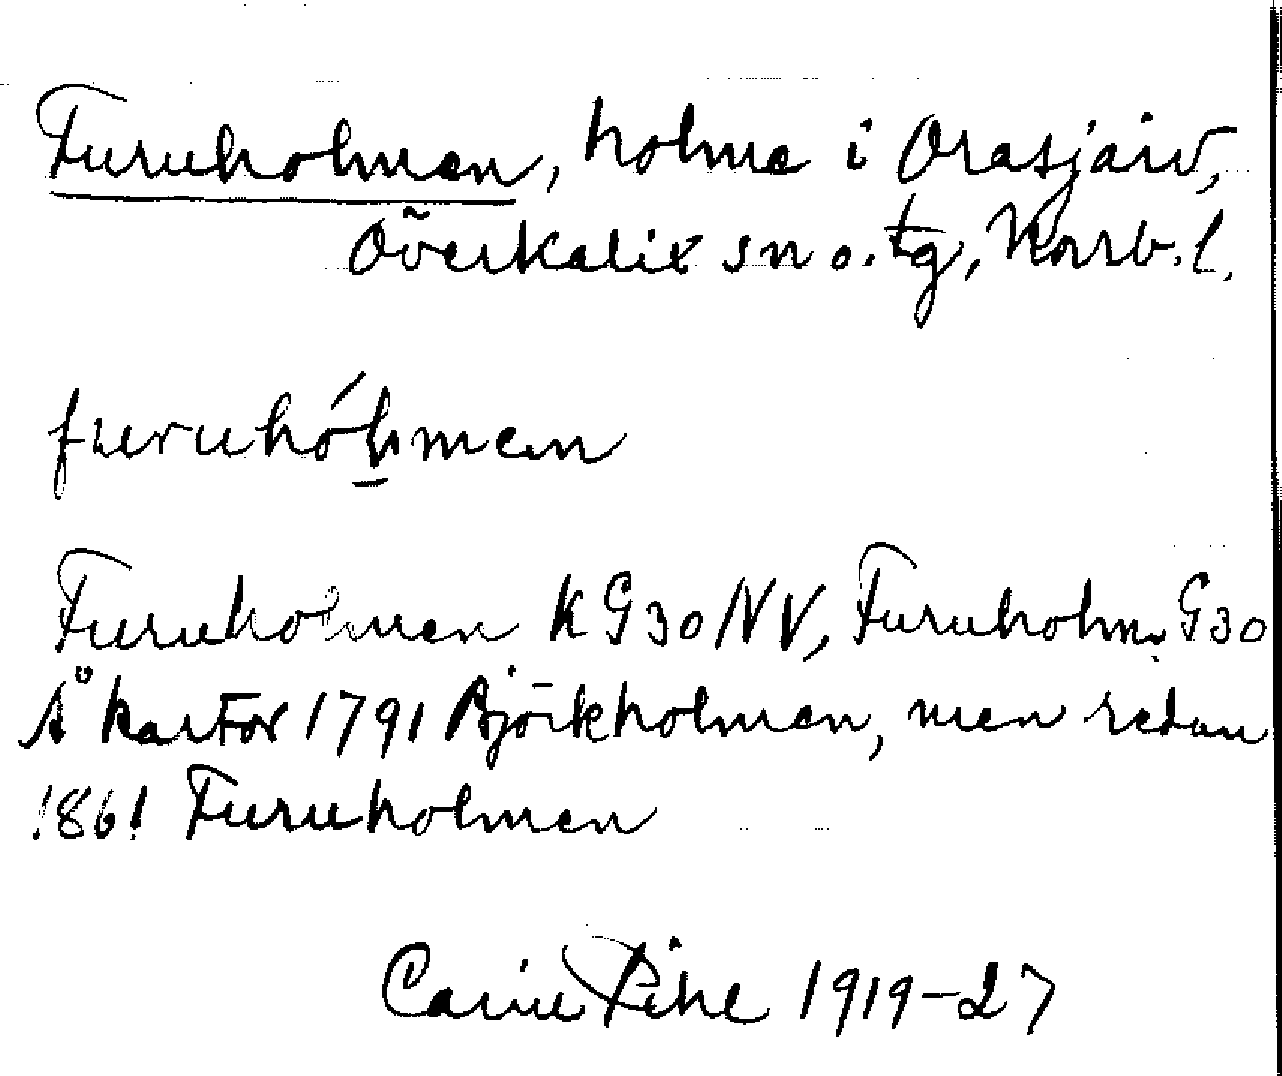 Furuholmen, holme i Orasjärv,
Överkalix sn o. tg, Norrb. l.
furuhólmen
Furuholmen K G30 NV, Furuholm. G30
Å kartor 1791 Björkholmen, men redan
1861 Furuholmen
Carin Pihl 1919-27